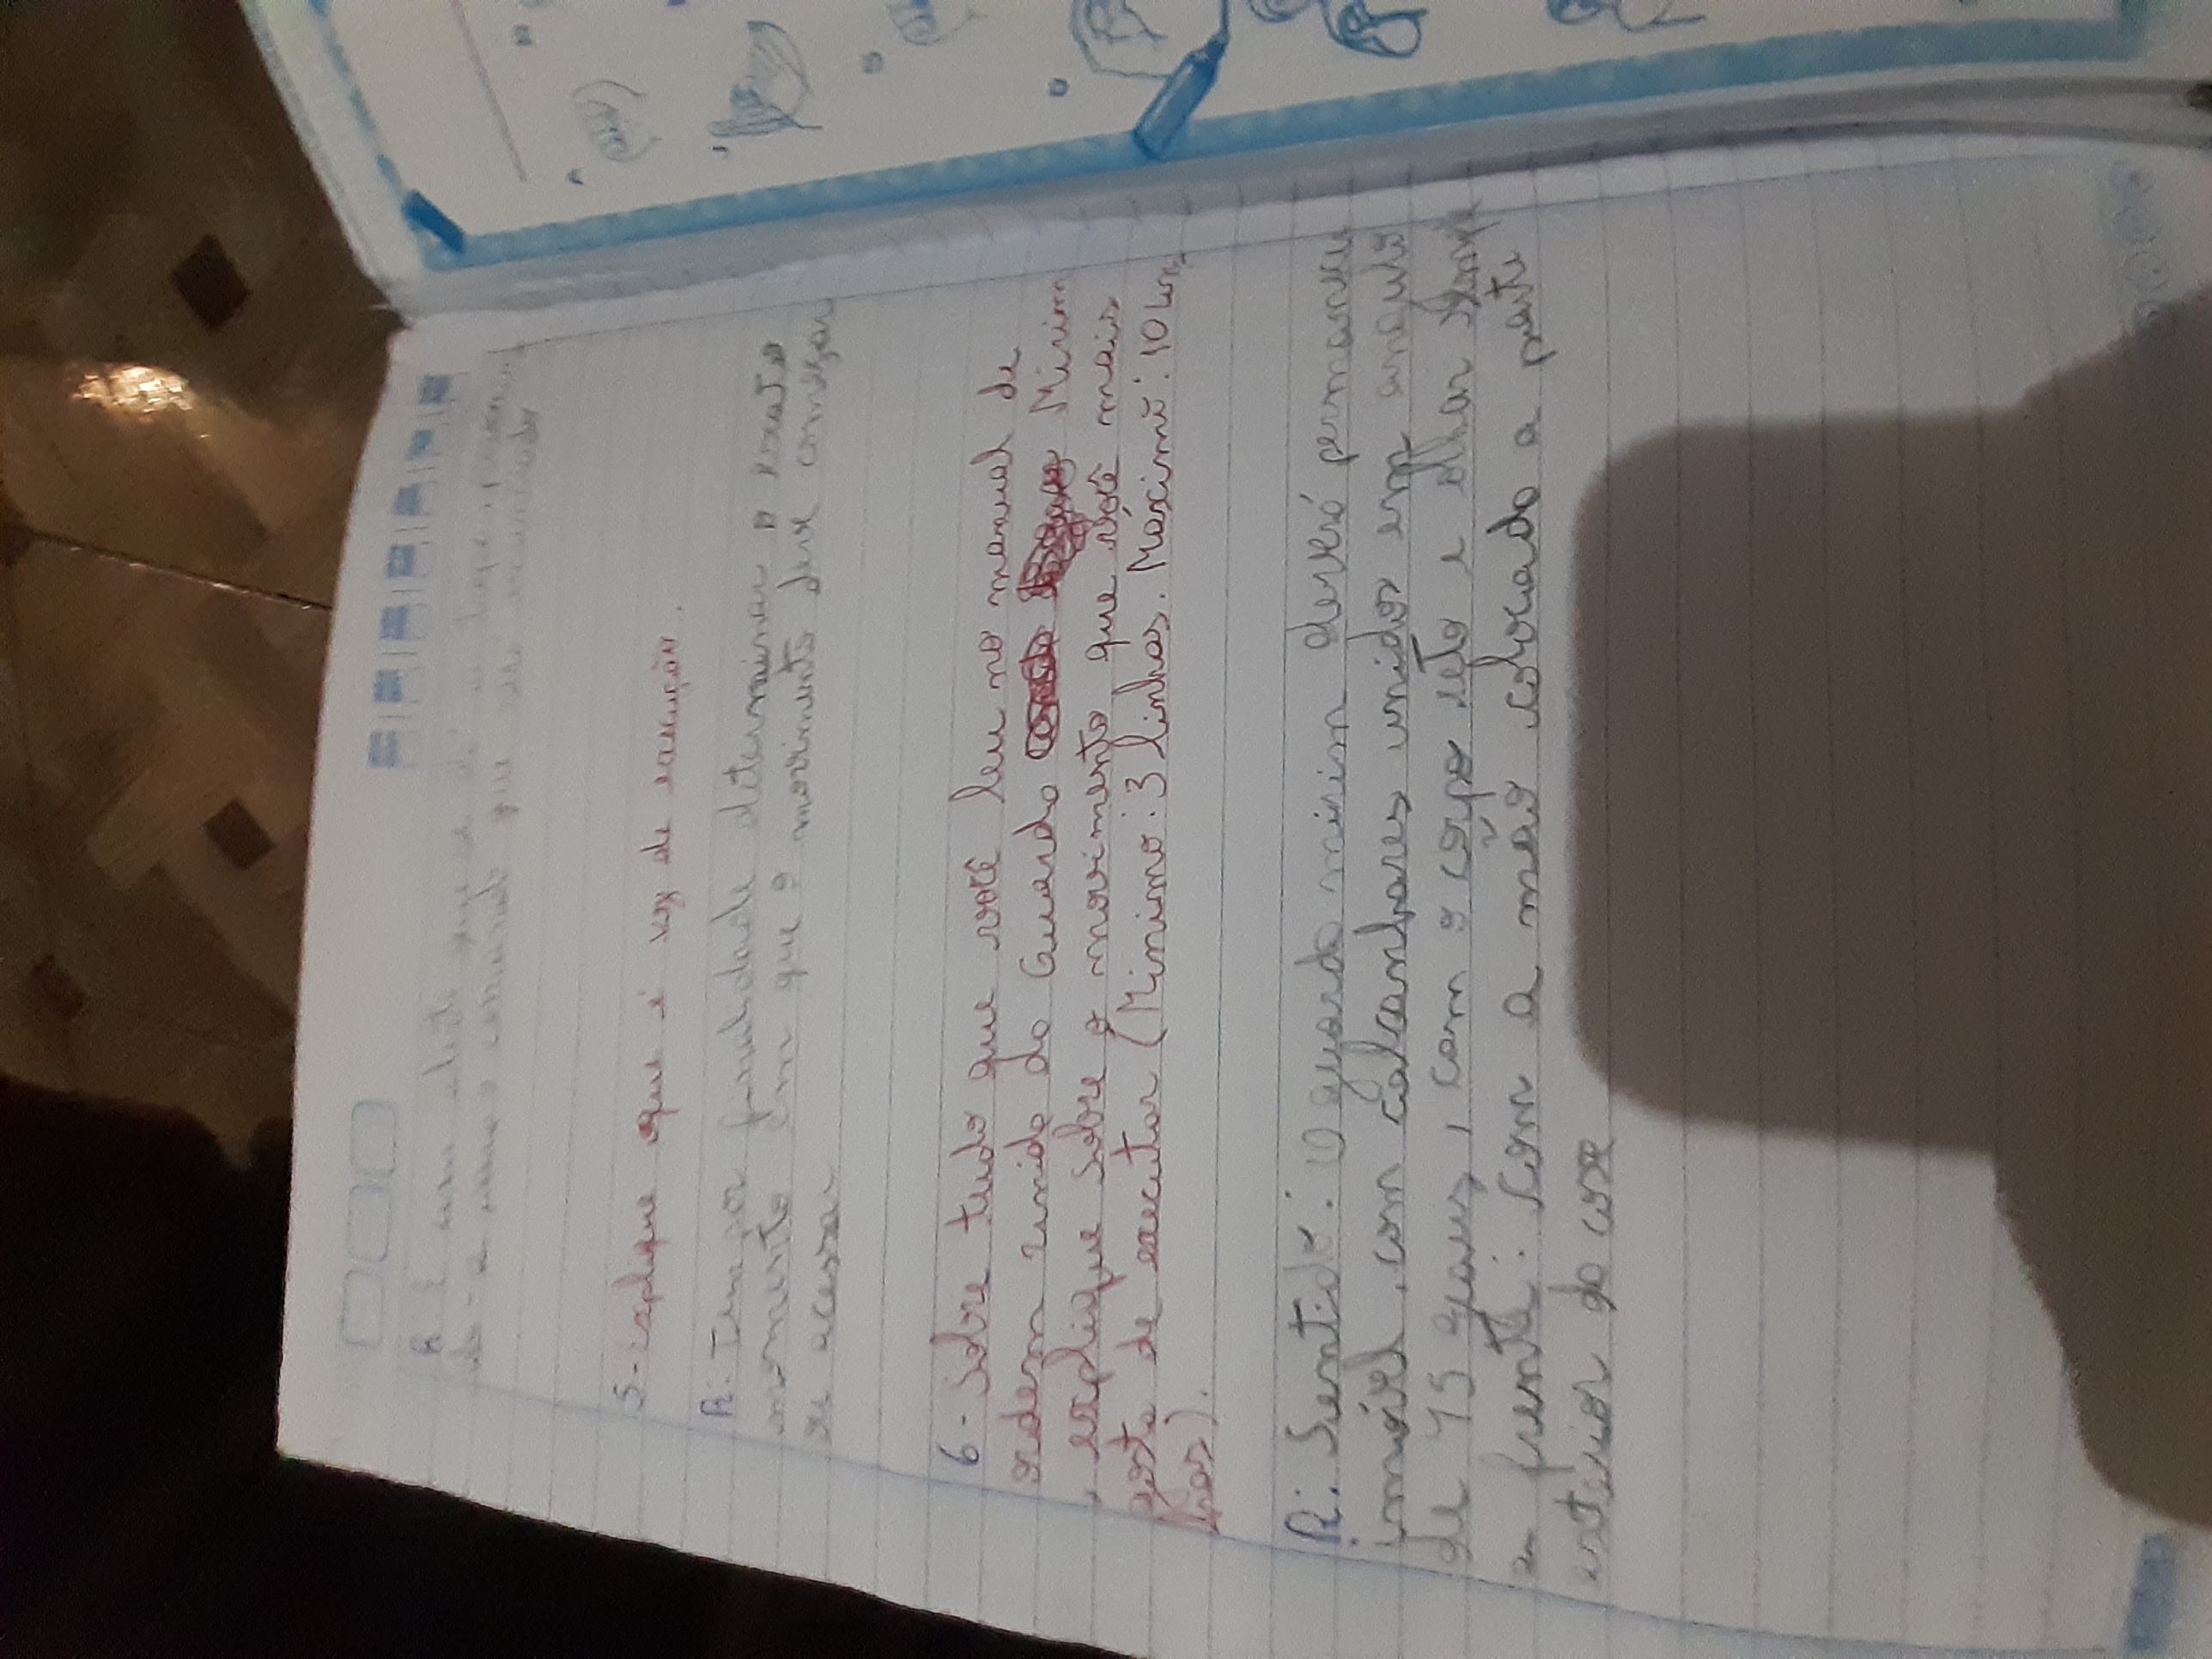 R: É um alerta que se dá a tropa,
do-a para o comando que será enunciado
5- Explique oque é voz de execução.
R: Tem por finalidade determinar o exato
momento em que o movimento deve começar
ou acessar
6- Sobre tudo que você leu no manual de
ordem unida da Guarda Mirim
, explique sobre o movimento que você mais
gosta de executar (Mínimo: 3 linhas. Máximo: 10 li
nhas).
R: Sentido: O guarda mirim deverá permanecer
imóvel, com calcanhares unidos em angulo
de 45 graus, com o corpo reto e olhar sempre
a frente: com a mão colocada a parte
exterior da coxa